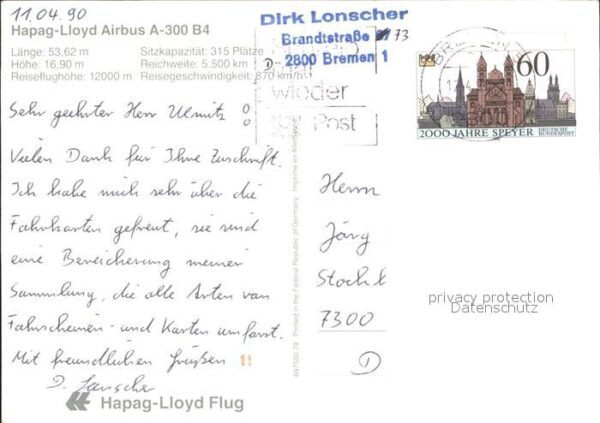 11.04.90
Hapag-Lloyd Airbus A-300 B4
Länge: 53.62 m Sitzkapazität: 315 Plätze
Höhe: 16,90 m Reichweite: 5.500 km
Reiseflughöhe: 12000 m Reisegeschwindigkeit: 870 km/h
Sehr geehrter Herr
Vielen Dank für Ihre Zuschrift.
Ich habe mich sehr über die
Fahrkarten gefreut, sie sind
eine Bereicherung meiner
Sammlung, die alle Arten von
Fahrscheinen und Karten umfasst.
Mit freundlichen Grüßen !!
D. Lonscher
Hapag-Lloyd Flug
Printed in the Federal Republic of Germany
Dirk Lonscher
Brandtstraße 73
D- 2800 Bremen 1
wieder
Post
60
2000 JAHRE SPEYER DEUTSCHE BUNDESPOST
Herrn
Jörg
7300
D
privacy protection
Datenschutz